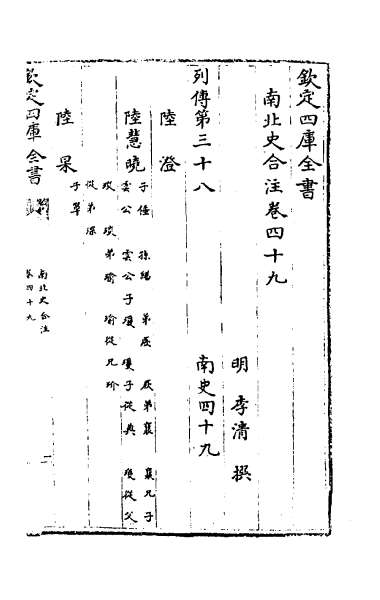 欽定四庫全書
南北史合注卷四十九
明 李清 撰
列傳第三十八 南史四十九
陸澄
陸慧曉 子倕 孫繕 弟厥 厥弟襄 襄兄子
雲公 雲公子瓊 瓊子從典 瓊從父
琰 琰弟瑜 瑜從兄玠
從弟琛
陸杲 子罩
欽定四庫全書
南北史合注
卷四十九
一